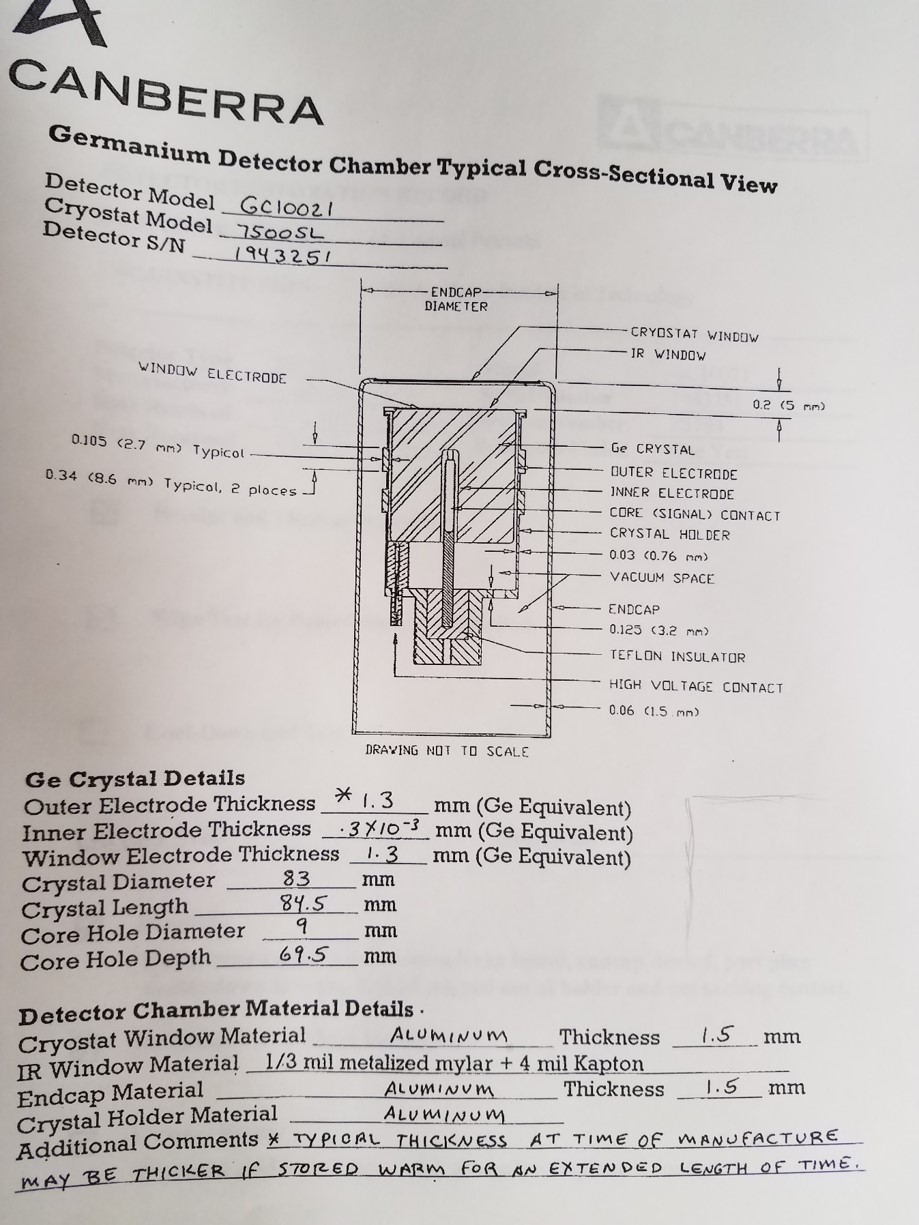 CANBERRA
Germanium Detector Chamber Typical Cross-Sectional View
Detector Model GC10021
Cryostat Model 7500SL
Detector S/N 1943251
ENDCAP
DIAMETER
CRYOSTAT WINDOW
IR WINDOW
WINDOW ELECTRODE
0.2 (5 mm)
0.105 (2.7 mm) Typical
0.34 (8.6 mm) Typical, 2 places
Ge CRYSTAL
OUTER ELECTRODE
INNER ELECTRODE
CORE (SIGNAL) CONTACT
CRYSTAL HOLDER
0.03 (0.76 mm)
VACUUM SPACE
ENDCAP
0.125 (3.2 mm)
TEFLON INSULATOR
HIGH VOLTAGE CONTACT
0.06 (1.5 mm)
DRAWING NOT TO SCALE
Ge Crystal Details
Outer Electrode Thickness * 1.3 mm (Ge Equivalent)
Inner Electrode Thickness .3X10-3 mm (Ge Equivalent)
Window Electrode Thickness 1.3 mm (Ge Equivalent)
Crystal Diameter 83 mm
Crystal Length 84.5 mm
Core Hole Diameter 9 mm
Core Hole Depth 69.5 mm
Detector Chamber Material Details
Cryostat Window Material ALUMINUM Thickness 1.5 mm
IR Window Material 1/3 mil metalized mylar + 4 mil Kapton
Endcap Material ALUMINUM Thickness 1.5 mm
Crystal Holder Material ALUMINUM
Additional Comments * TYPICAL THICKNESS AT TIME OF MANUFACTURE
MAY BE THICKER IF STORED WARM FOR AN EXTENDED LENGTH OF TIME.